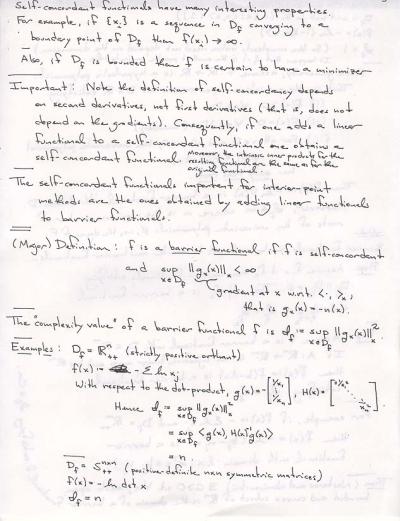 Self-concordant functionals have many interesting properties.
For example, if {x_i} is a sequence in D_f converging to a
boundary point of D_f then f(x_i) → ∞.
Also, if D_f is bounded then f is certain to have a minimizer
Important: Note the definition of self-concordancy depends
on second derivatives, not first derivatives (that is, does not
depend on the gradients). Consequently, if one adds a linear
functional to a self-concordant functional one obtains a
self-concordant functional. Moreover, the intrinsic inner products for the
resulting functional are the same as for the
original functional.
The self-concordant functionals important for interior-point
methods are the ones obtained by adding linear functionals
to barrier functionals.
(Major) Definition: f is a barrier functional if f is self-concordant
and sup_{x∈D_f} ||g_x(x)||_x < ∞
gradient at x w.r.t. < , >_x,
that is g_x(x) = -n(x).
The "complexity value" of a barrier functional f is ϑ_f := sup_{x∈D_f} ||g_x(x)||_x^2.
Examples: D_f = R^n_{++} (strictly positive orthant)
f(x) := - Σ ln x_j
With respect to the dot-product, g(x) = -[1/x_1 ⋮ 1/x_n], H(x) = [1/x_1^2 ⋱ 1/x_n^2].
Hence ϑ_f = sup_{x∈D_f} ||g_x(x)||_x^2
= sup_{x∈D_f} <g(x), H(x)^{-1} g(x)>
= n.
D_f = S^{n×n}_{++} (positive-definite n×n symmetric matrices)
f(x) = - ln det x
ϑ_f = n